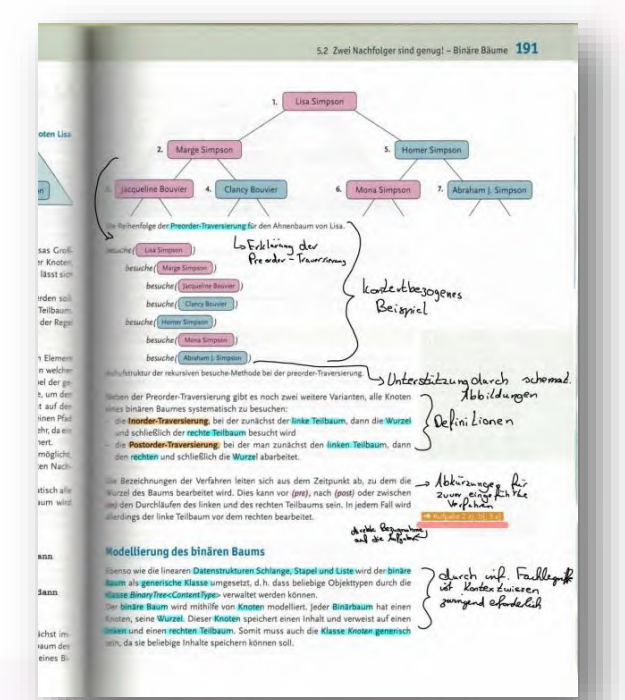 5.2 Zwei Nachfolger sind genug! – Binäre Bäume 191
1. Lisa Simpson
2. Marge Simpson
5. Homer Simpson
Jacqueline Bouvier
4. Clancy Bouvier
6. Mona Simpson
7. Abraham J. Simpson
Reihenfolge der Preorder-Traversierung für den Ahnenbaum von Lisa.
↳ Erklärung der
Preorder-Traversierung
besuche( Lisa Simpson )
besuche( Marge Simpson )
besuche( Jacqueline Bouvier )
besuche( Clancy Bouvier )
besuche( Homer Simpson )
besuche( Mona Simpson )
besuche( Abraham J. Simpson )
kontextbezogenes
Beispiel
Aufrufstruktur der rekursiven besuche-Methode bei der preorder-Traversierung.
Unterstützung durch schemat.
Abbildungen
Neben der Preorder-Traversierung gibt es noch zwei weitere Varianten, alle Knoten
eines binären Baumes systematisch zu besuchen:
– die Inorder-Traversierung, bei der zunächst der linke Teilbaum, dann die Wurzel
und schließlich der rechte Teilbaum besucht wird
– die Postorder-Traversierung, bei der man zunächst den linken Teilbaum, dann
den rechten und schließlich die Wurzel abarbeitet.
Definitionen
Die Bezeichnungen der Verfahren leiten sich aus dem Zeitpunkt ab, zu dem die
Wurzel des Baums bearbeitet wird. Dies kann vor (pre), nach (post) oder zwischen
(in) den Durchlaufen des linken und des rechten Teilbaums sein. In jedem Fall wird
allerdings der linke Teilbaum vor dem rechten bearbeitet.
→ Abkürzungen für
Verfahren
direkte Bezugnahme
auf die Aufgaben
Modellierung des binären Baums
Ebenso wie die linearen Datenstrukturen Schlange, Stapel und Liste wird der binäre
Baum als generische Klasse umgesetzt, d. h. dass beliebige Objekttypen durch die
Klasse BinaryTree<ContentType> verwaltet werden können.
Der binäre Baum wird mithilfe von Knoten modelliert. Jeder Binärbaum hat einen
Knoten, seine Wurzel. Dieser Knoten speichert einen Inhalt und verweist auf einen
linken und einen rechten Teilbaum. Somit muss auch die Klasse Knoten generisch
sein, da sie beliebige Inhalte speichern können soll.
durch inf. Fachbegriffe
ist Kontextwissen
zwingend erforderlich